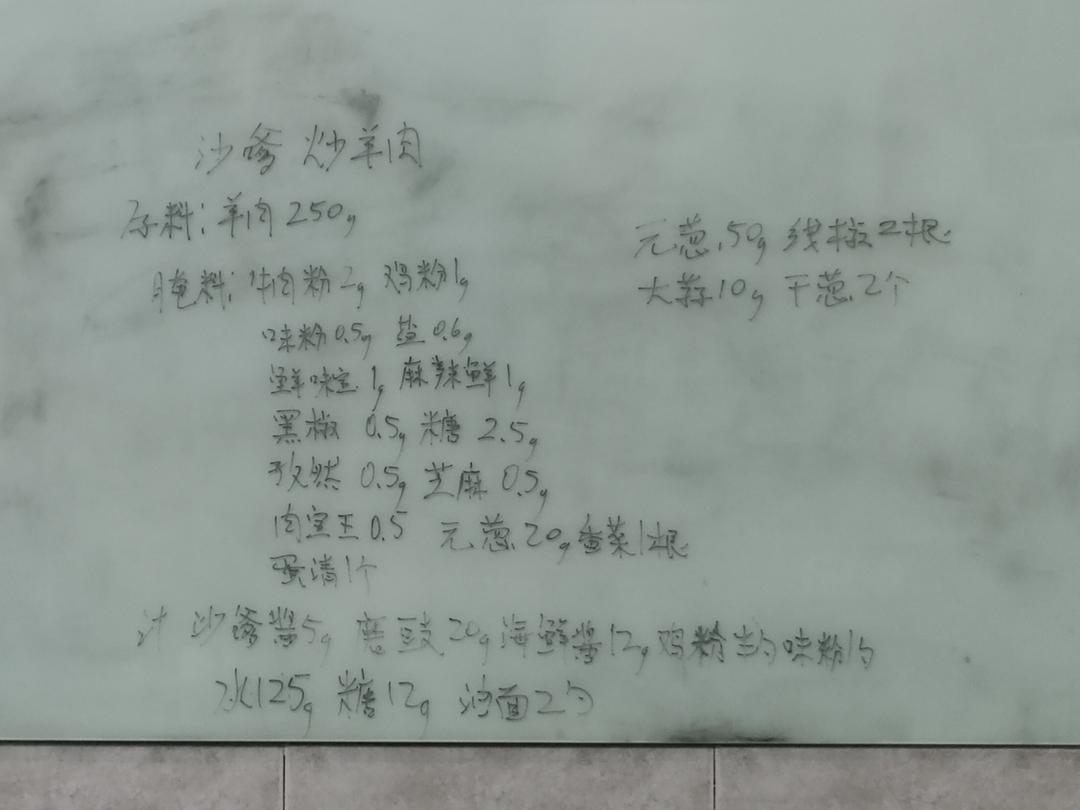 沙爹 炒羊肉
原料:羊肉250g
腌料:牛肉粉2g 鸡粉1g
味粉0.5g 盐0.6g
鲜味宝1g 麻辣鲜1g
黑椒 0.5g 糖 2.5g
孜然 0.5g 芝麻 0.5g
肉宝王0.5 元葱20g 香菜1根
蛋清1个
汁 沙爹酱5g 磨豉20g 海鲜酱12g 鸡粉 味粉1勺
水125g 糖12g 2勺
元葱50g 线椒2根
大蒜10g 干葱2个